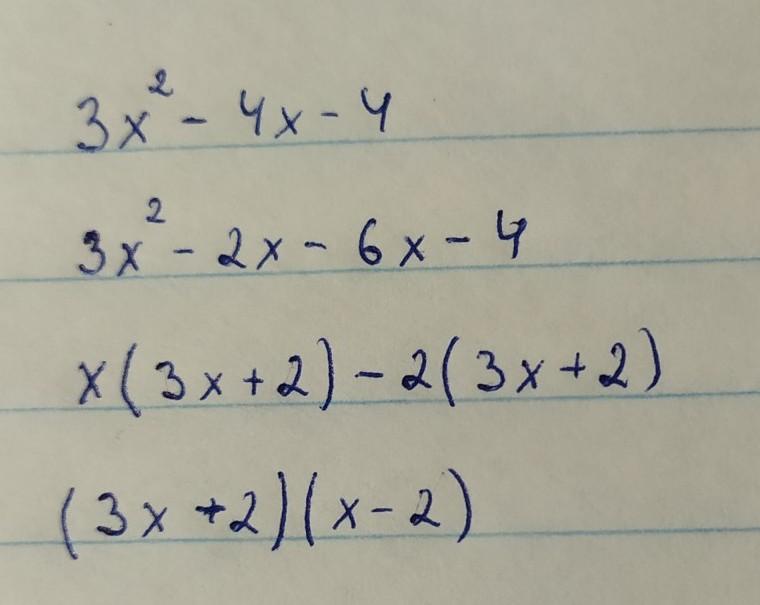 3x² - 4x - 4
3x² - 2x - 6x - 4
x(3x+2) - 2(3x+2)
(3x+2)(x-2)